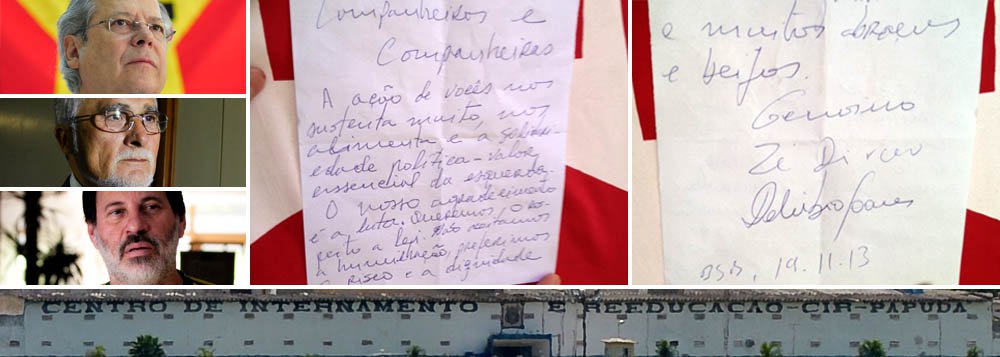 Companheiros e
Companheiras
A ação de vocês nos
sustenta muito, nos
alimenta e a solidari-
edade política - valor
essencial da esquerda.
O nosso agradecimento
é a luta. Queremos, o res-
peito a lei. Não aceitamos
a humilhação, preferimos
o risco e a dignidade
e muitos abraços
e beijos.
Genoino
Zé Dirceu
Delúbio Soares
BSB, 19.11.13
CENTRO DE INTERNAMENTO E REEDUCAÇÃO-CIR-PAPUDA